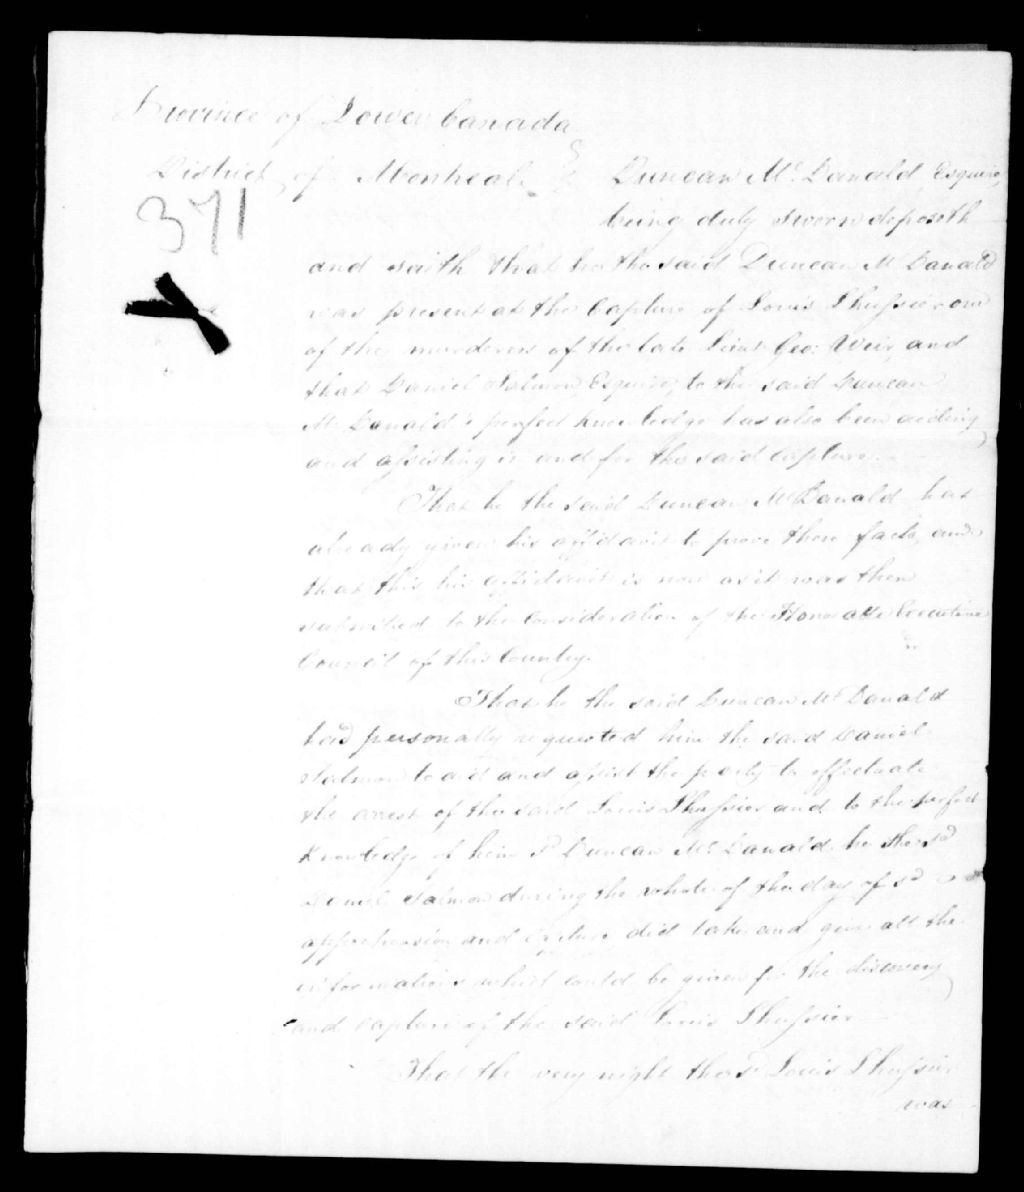 Province of Lower Canada
District of Montreal. Duncan McDanald Esquire,
371
being duly sworn deposeth
and saith that he the said Duncan McDanald
was present at the Capture of Louis Lhussier one
of the murderers of the late Lieut. Geo: Weir, and
that Daniel Salmon, Esquire, to the said Duncan
McDanald's perfect knowledge has also been aiding
and assisting in and for the said capture.
That he the said Duncan McDanald has
already given his affidavit to prove these facts, and
that this his affidavit is now as it was then
submitted to the Consideration of the Honorable Executive
Council of this Country.
That he the said Duncan McDanald
had personally requested him the said Daniel
Salmon to aid and assist the party to effectuate
the arrest of the said Louis Lhussier and to the perfect
knowledge of him Sd Duncan McDanald he the sd
Daniel Salmon during the whole of the day of sd
apprehension and Capture did take and give all the
informations which could be given for the discovery
and capture of the said Louis Lhussier
That the very night the sd Louis Lhussier
was